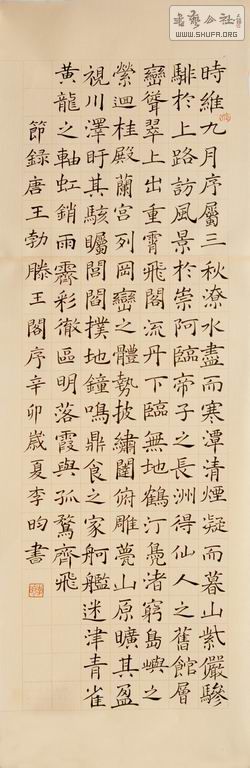 時維九月序屬三秋潦水盡而寒潭清煙凝而暮山紫儼驂
騑於上路訪風景於崇阿臨帝子之長洲得仙人之舊館層
巒聳翠上出重霄飛閣流丹下臨無地鶴汀鳧渚窮島嶼之
縈迴桂殿蘭宮列岡巒之體勢披繡闥俯雕甍山原曠其盈
視川澤盱其駭矚閭閻撲地鐘鳴鼎食之家舸艦迷津青雀
黃龍之軸虹銷雨霽彩徹區明落霞與孤鶩齊飛
節錄唐王勃滕王閣序辛卯歲夏李昀書
WWW.SHUFA.ORG